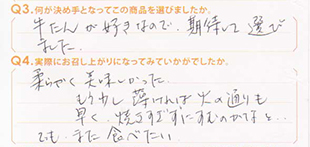 Q3.何が決め手となってこの商品を選びましたか。
牛たんが好きなので、期待して選び
ました。
Q4.実際にお召し上がりになってみていかがでしたか。
柔らやく美味しかった。
もう少し薄ければ火の通りも
早く、焼きすぎずにすむのかなと…
でも、また食べたい